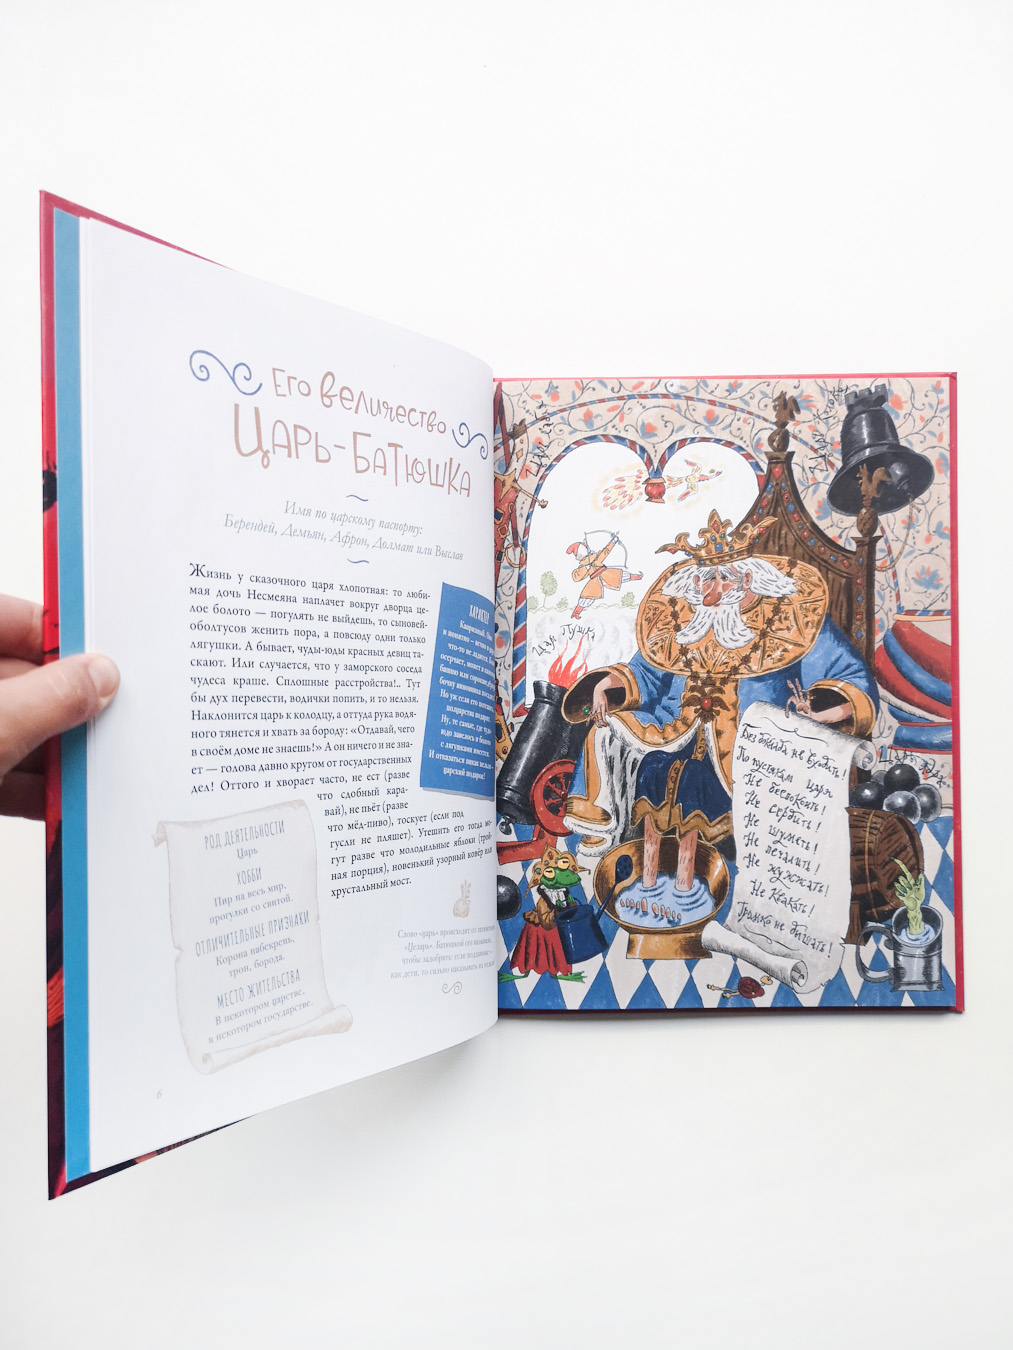 Его величество
Царь-Батюшка
Имя по царскому паспорту:
Берендей, Демьян, Афрон, Долмат или Выслав
Жизнь у сказочного царя хлопотная: то люби-
мая дочь Несмеяна наплачет вокруг дворца це-
лое болото — погулять не выйдешь, то сыновей-
оболтусов женить пора, а повсюду одни только
лягушки. А бывает, чуды-юды красных девиц та-
скают. Или случается, что у заморского соседа
чудеса краше. Сплошные расстройства!.. Тут
бы дух перевести, водички попить, и то нельзя.
Наклонится царь к колодцу, а оттуда рука водя-
ного тянется и хвать за бороду: «Отдавай, чего
в своём доме не знаешь!» А он ничего и не зна-
ет — голова давно кругом от государственных
дел! Оттого и хворает часто, не ест (разве
что сдобный кара-
вай), не пьёт (разве
что мёд-пиво), тоскует (если под
гусли не пляшет). Утешить его тогда мо-
гут разве что молодильные яблоки (трой-
ная порция), новенький узорный ковёр или
хрустальный мост.
ХАРАКТЕР
Капризный.
и понятно – вечно
что-то не ладится.
осерчает, может в
башню или
бочку виновника
Но уж если его
полцарства подарит.
Ну, те самые, где чудо-
юдо завелось и болото
с лягушками имеется.
И отказаться никак нельзя –
царский подарок!
РОД ДЕЯТЕЛЬНОСТИ
Царь
ХОББИ
Пир на весь мир,
прогулки со свитой.
ОТЛИЧИТЕЛЬНЫЕ ПРИЗНАКИ
Корона набекрень,
трон, борода.
МЕСТО ЖИТЕЛЬСТВА
В некотором царстве,
в некотором государстве.
Слово «царь» происходит от
«Цезарь». Батюшкой его называли,
чтобы задобрить: если подданные —
как дети, то сильно наказывать их нельзя!
6
Царь Колокол
Царь Пушка
Царь Ядра
Без доклада не входить!
По пустякам царя
Не беспокоить!
Не сердить!
Не шуметь!
Не печалить!
Не жужжать!
Не Квакать!
Громко не дышать!